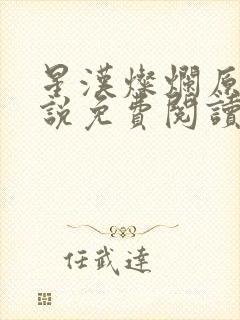 星漢燦爛原
說免費閱讀
任武達